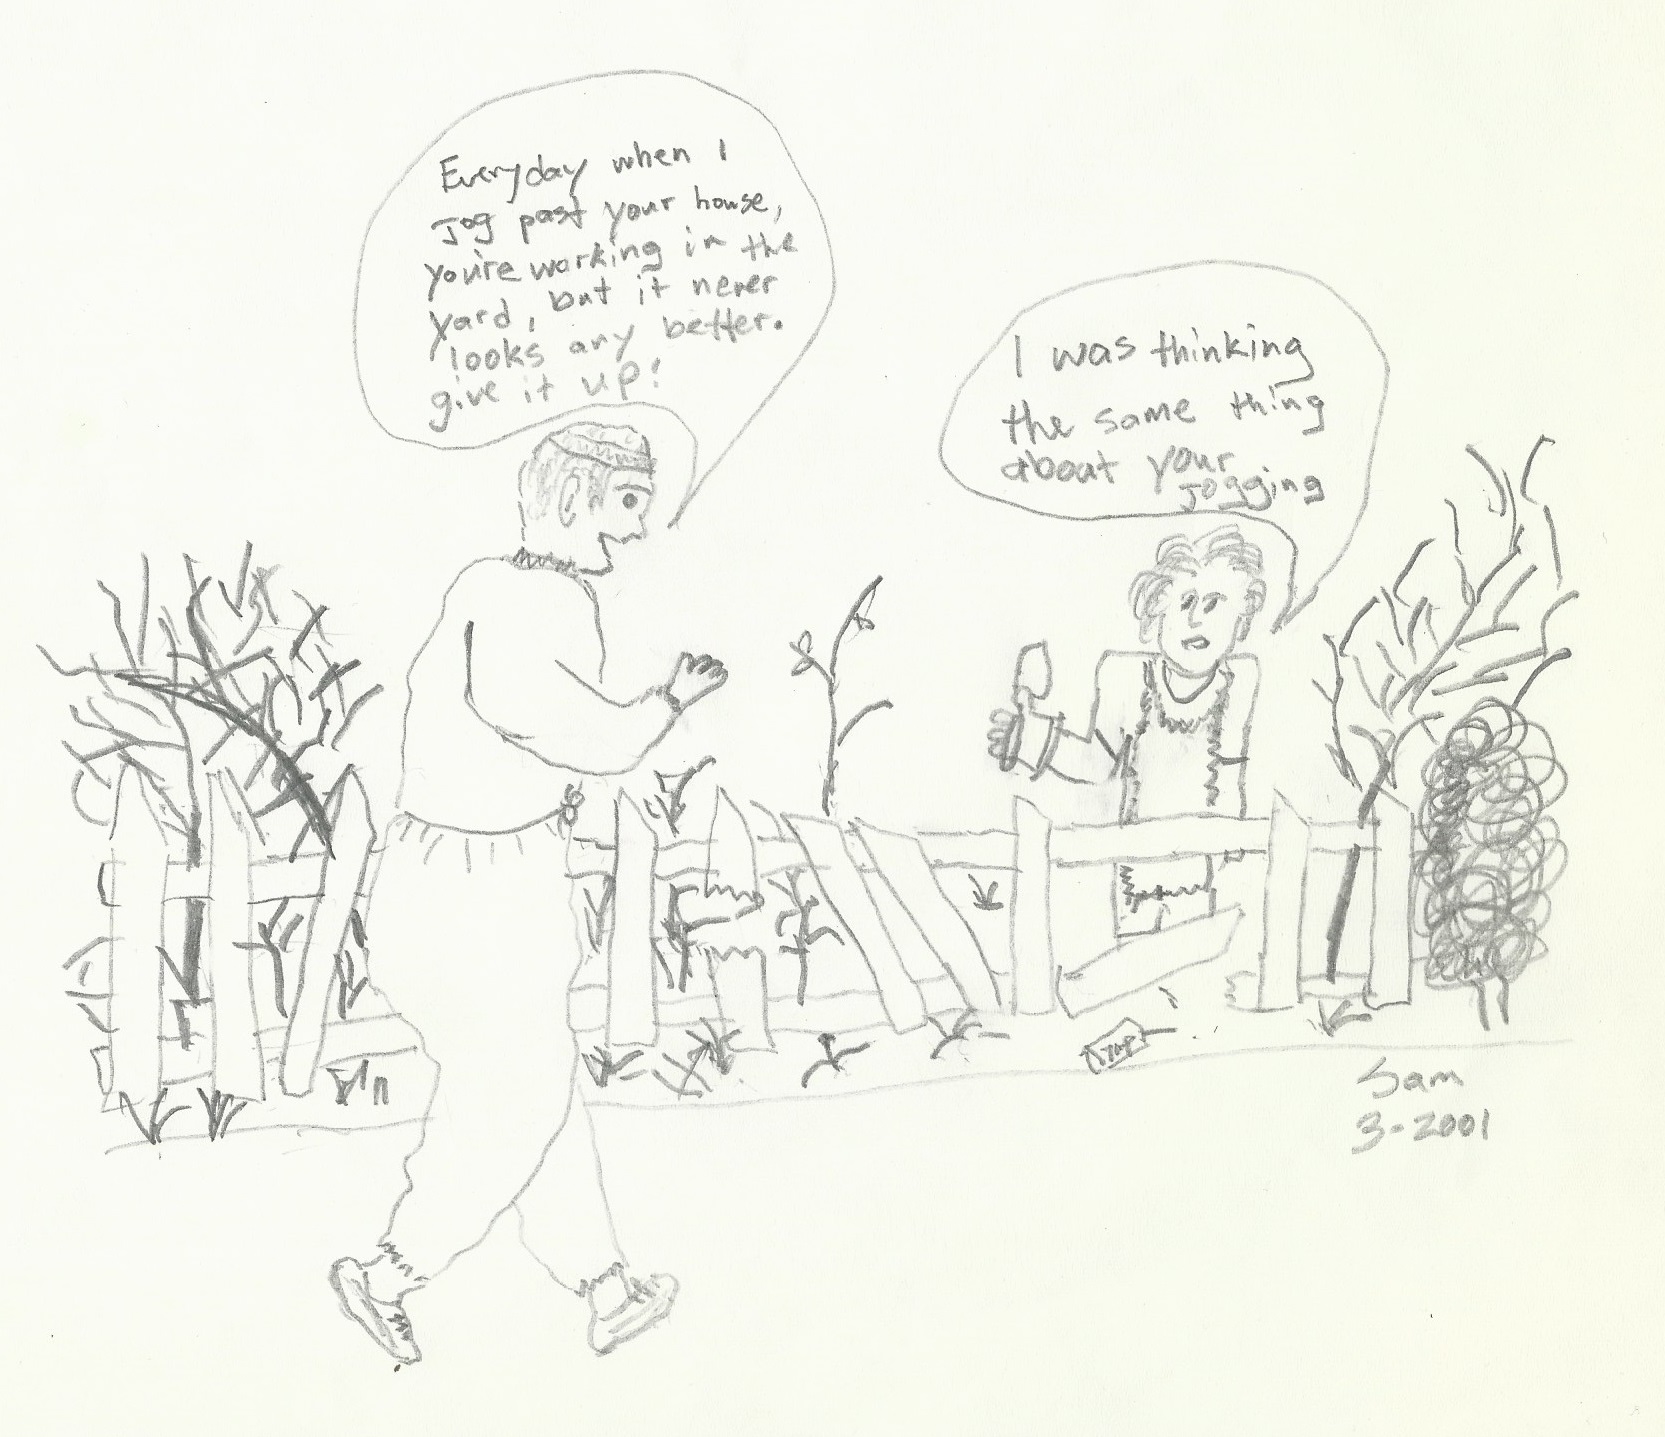 Everyday when I
Jog past your house,
you're working in the
yard, but it never
looks any better.
give it up!
I was thinking
the same thing
about your
Jogging
Sam
3-2001